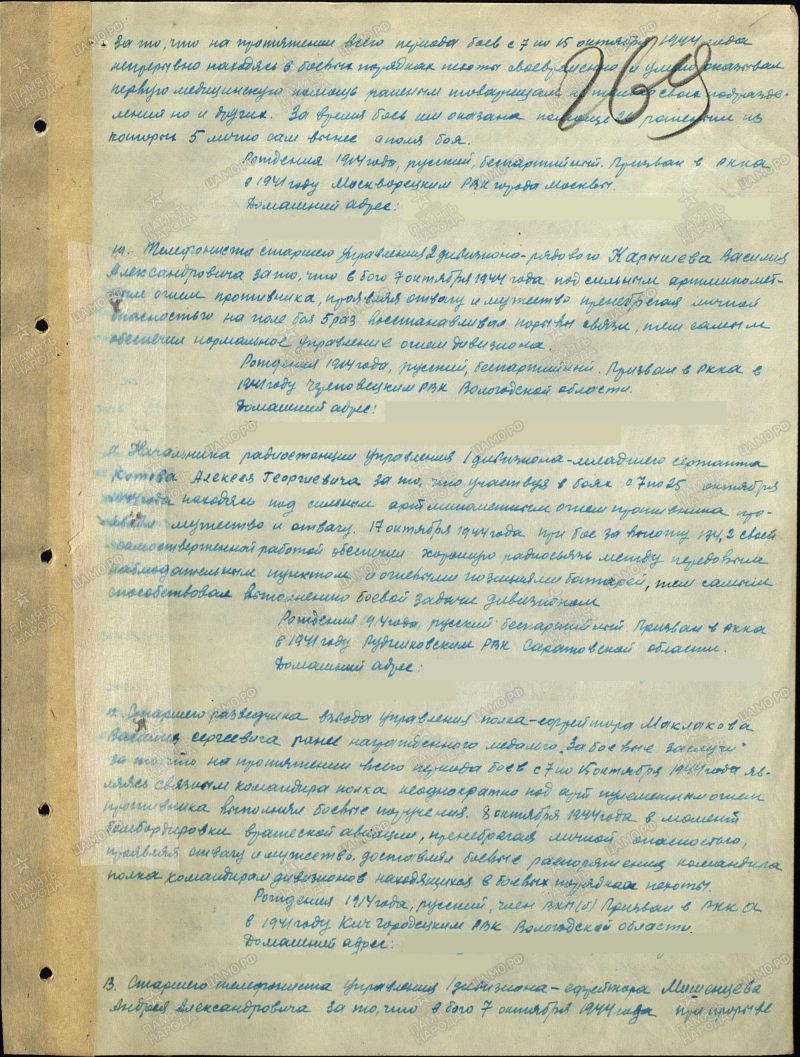 за то, что на протяжении всего периода боев с 7 по 15 октября 1944 года
непрерывно находясь в боевых порядках пехоты своевременно и умело оказывал
первую медицинскую помощь раненым товарищам не только своего подразде-
ления но и других. За время боев им оказана помощь раненым из
которых 5 лично сам вынес с поля боя.
269
Рождения 1914 года, русский, беспартийный. Призван в РККА
в 1941 году Москворецким РВК города Москвы.
Домашний адрес:
10. Телефониста старшего управления 2 дивизиона - рядового Карышева Василия
Александровича за то, что в бою 7 октября 1944 года под сильным артминомет-
ным огнем противника, проявляя отвагу и мужество пренебрегая личной
опасностью на поле боя 5 раз восстанавливал порывы связи, тем самым
обеспечил нормальное управление огнем дивизиона.
Рождения 1914 года, русский, беспартийный. Призван в РККА в
1941 году Череповецким РВК Вологодской области.
Домашний адрес:
11. Начальника радиостанции управления 1 дивизиона - младшего сержанта
Котова Алексея Георгиевича за то, что участвуя в боях с 7 по 25 октября
1944 года находясь под сильным артминометным огнем противника про-
являл мужество и отвагу. 17 октября 1944 года при бое за высоту 134,2 своей
самоотверженной работой обеспечил хорошую радиосвязь между передовым
наблюдательным пунктом и огневыми позициями батарей, тем самым
способствовал выполнению боевой задачи дивизионом
Рождения года, русский беспартийный. Призван в РККА
в 1941 году РВК Саратовской области.
Домашний адрес:
12. Старшего разведчика взвода управления полка - ефрейтора Маклакова
Василия Сергеевича ранее награжденного медалью "За боевые заслуги"
за то, что на протяжении всего периода боев с 7 по 15 октября 1944 года яв-
ляясь связным командира полка неоднократно под арт пулеметным огнем
противника выполнял боевые поручения. 8 октября 1944 года в момент
бомбардировки вражеской авиации, пренебрегая личной опасностью,
проявляя отвагу и мужество, доставлял боевые распоряжения командира
полка командирам дивизионов находящихся в боевых порядках пехоты.
Рождения 1914 года, русский, член ВКП(б) Призван в РККА
в 1941 году Кичгородецким РВК Вологодской области.
Домашний адрес:
13. Старшего телефониста управления 1 дивизиона - ефрейтора Мишенцева
Андрея Александровича за то, что в бою 7 октября 1944 года при прорыве